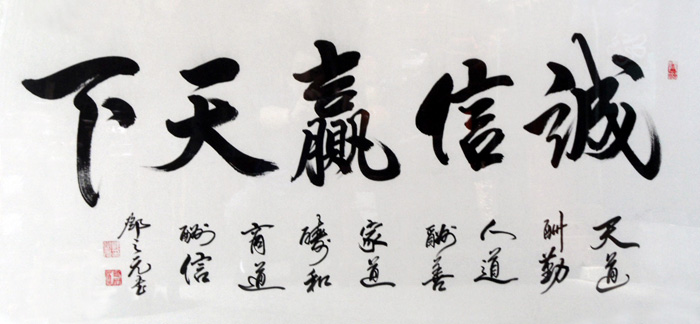 誠信贏天下
天道
酬勤
人道
酬善
家道
酬和
商道
酬信
鄧之元书